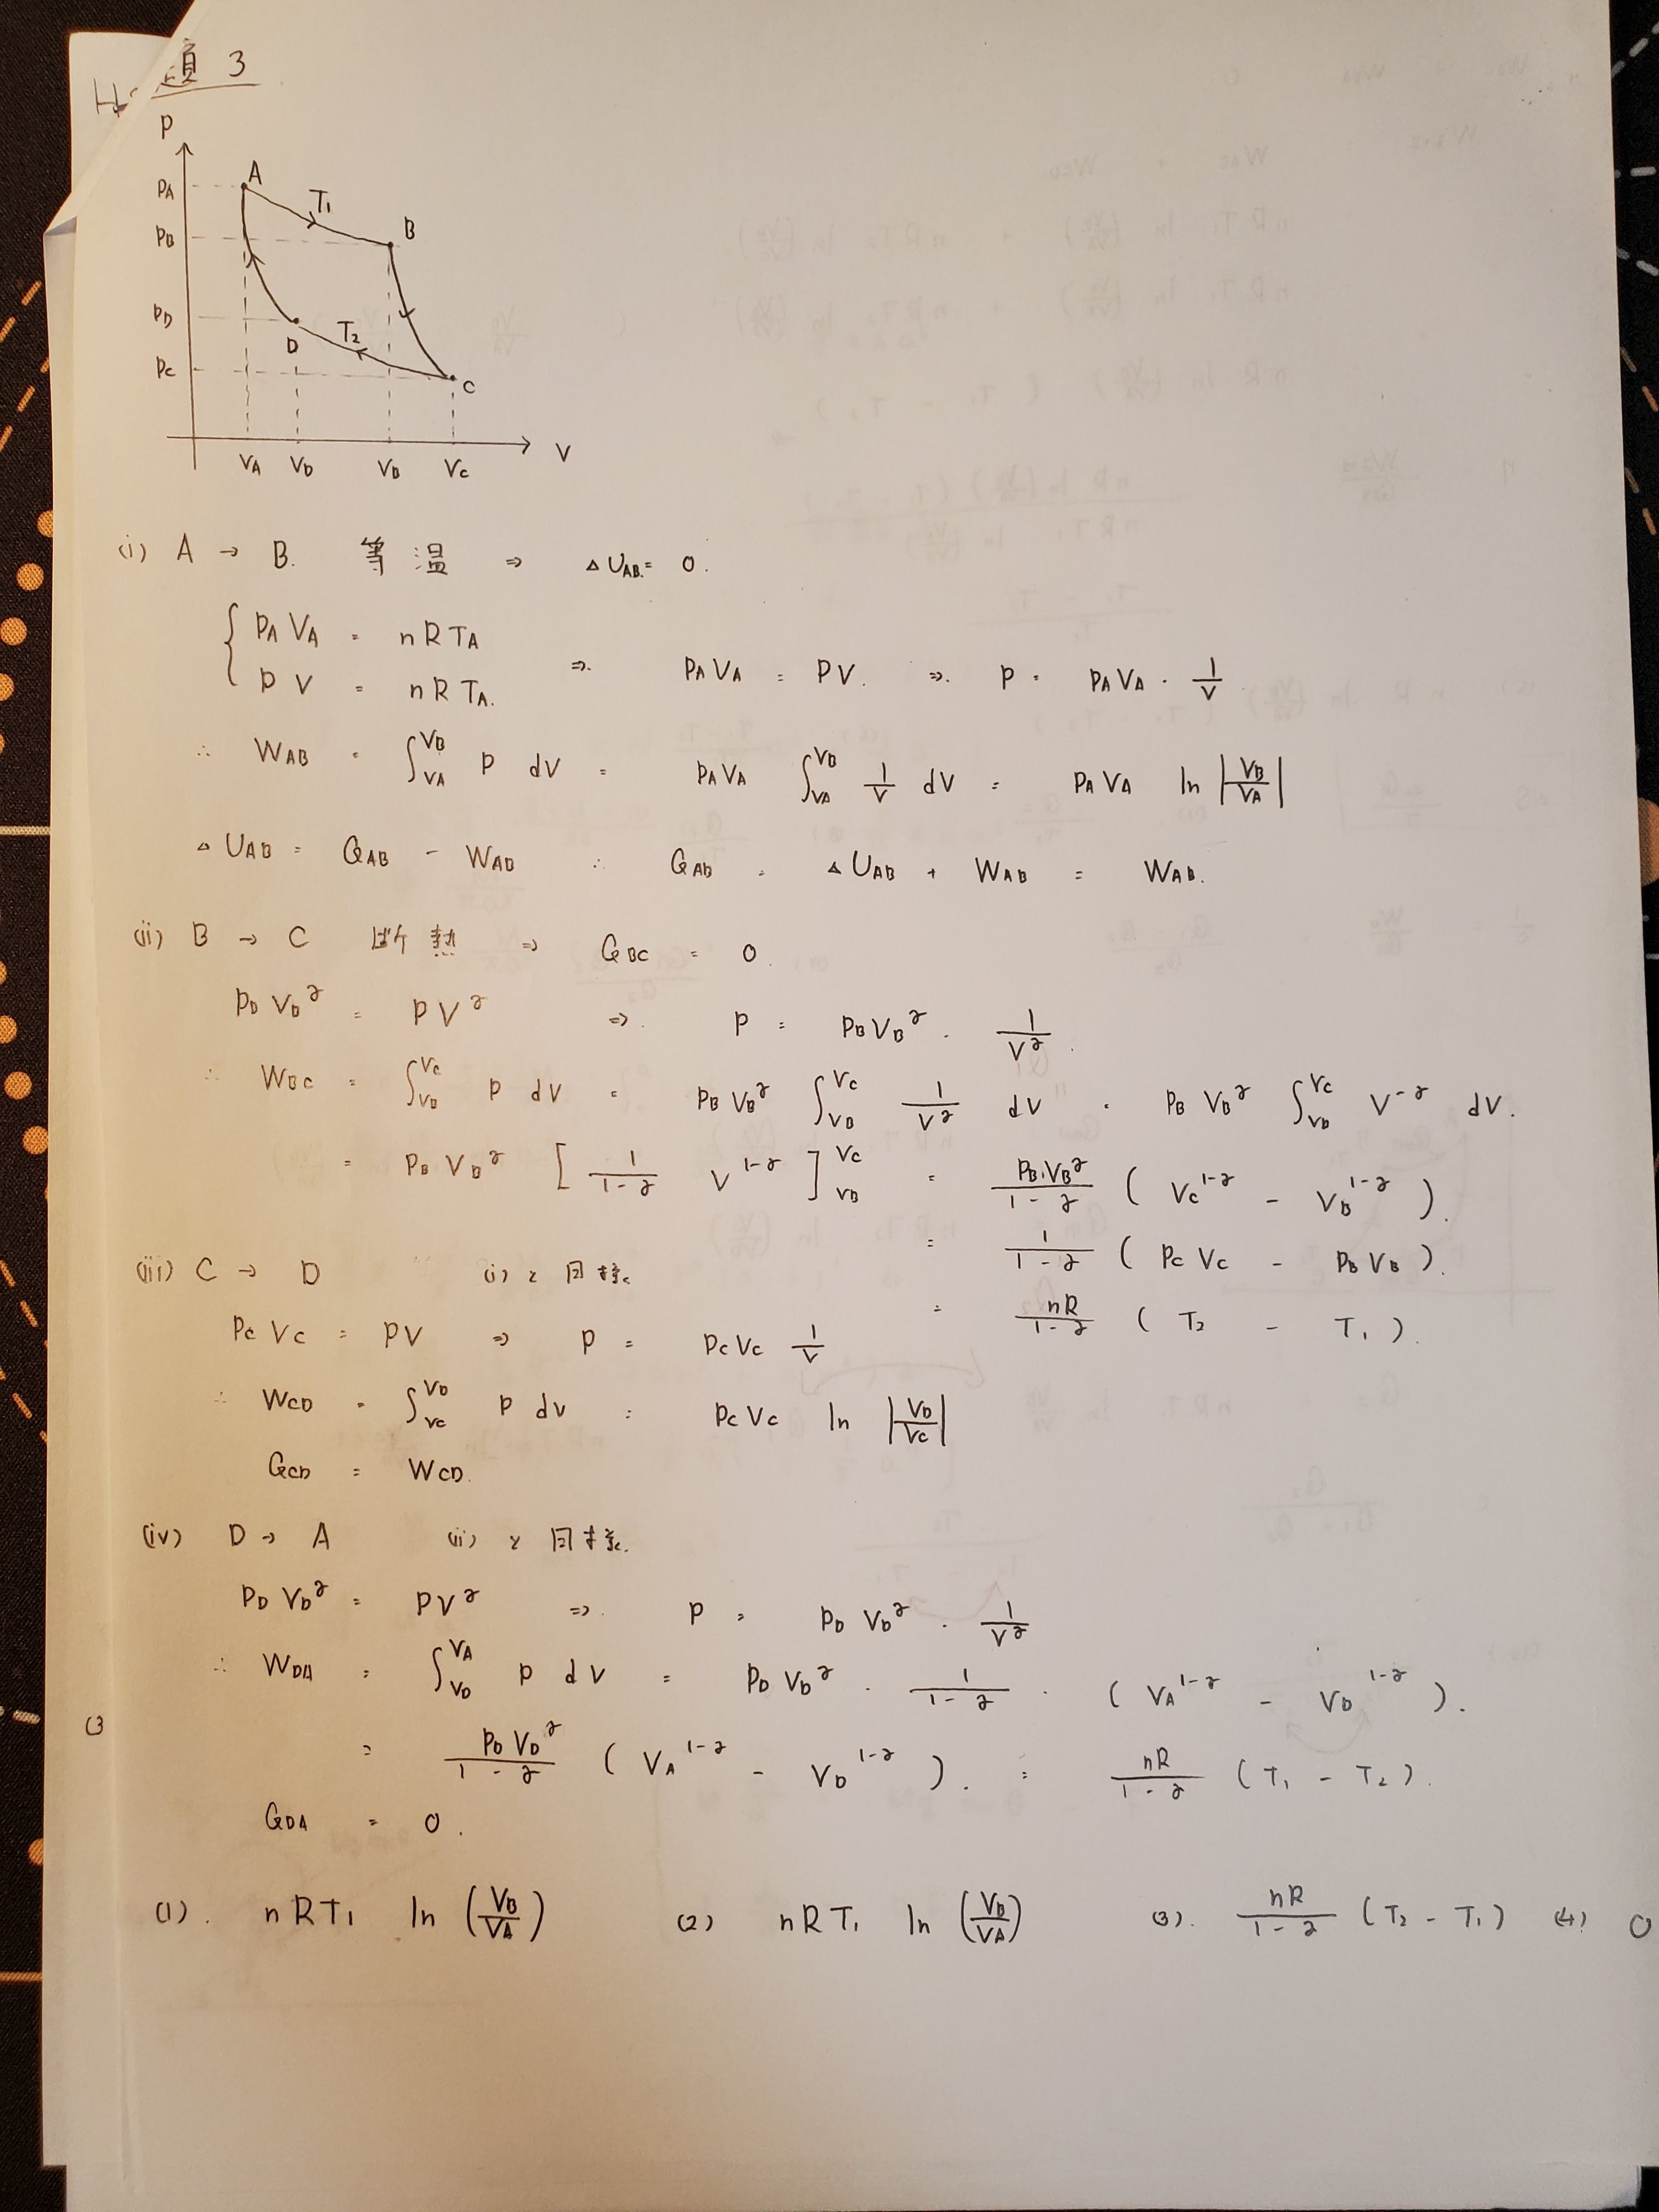 題 3
P
PA
PB
PD
PC
A
T₁
B
D
T₂
C
VA VD VB VC V
(i) A → B. 等温 ⇒ △UAB = 0.
{ PA VA = nRTA
P V = nRTA. ⇒ PA VA = PV. ⇒ P = PA VA · 1/V
∴ WAB = ∫_VA^VB P dV = PA VA ∫_VA^VB 1/V dV = PA VA ln |VB/VA|
△UAB = QAB - WAB ∴ QAB = △UAB + WAB = WAB.
(ii) B → C 断熱 ⇒ QBC = 0.
PB VB^γ = PV^γ ⇒ P = PB VB^γ · 1/V^γ.
∴ WBC = ∫_VB^VC P dV = PB VB^γ ∫_VB^VC 1/V^γ dV = PB VB^γ ∫_VB^VC V^-γ dV.
= PB VB^γ [ 1/(1-γ) V^1-γ ]_VB^VC = PB·VB^γ/(1-γ) ( VC^1-γ - VB^1-γ ).
= 1/(1-γ) ( PC VC - PB VB ).
= nR/(1-γ) ( T₂ - T₁ ).
(iii) C → D (i) と同様
PC VC = PV ⇒ P = PC VC 1/V
∴ WCD = ∫_VC^VD P dV = PC VC ln |VD/VC|
QCD = WCD.
(iv) D → A (ii) と同様.
PD VD^γ = PV^γ ⇒ P = PD VD^γ · 1/V^γ
∴ WDA = ∫_VD^VA P dV = PD VD^γ · 1/(1-γ) · ( VA^1-γ - VD^1-γ ).
= PD VD^γ/(1-γ) ( VA^1-γ - VD^1-γ ). = nR/(1-γ) ( T₁ - T₂ ).
QDA = 0.
(1). nRT₁ ln (VB/VA) (2) nRT₁ ln (VB/VA) (3). nR/(1-γ) ( T₂ - T₁ ) (4) 0